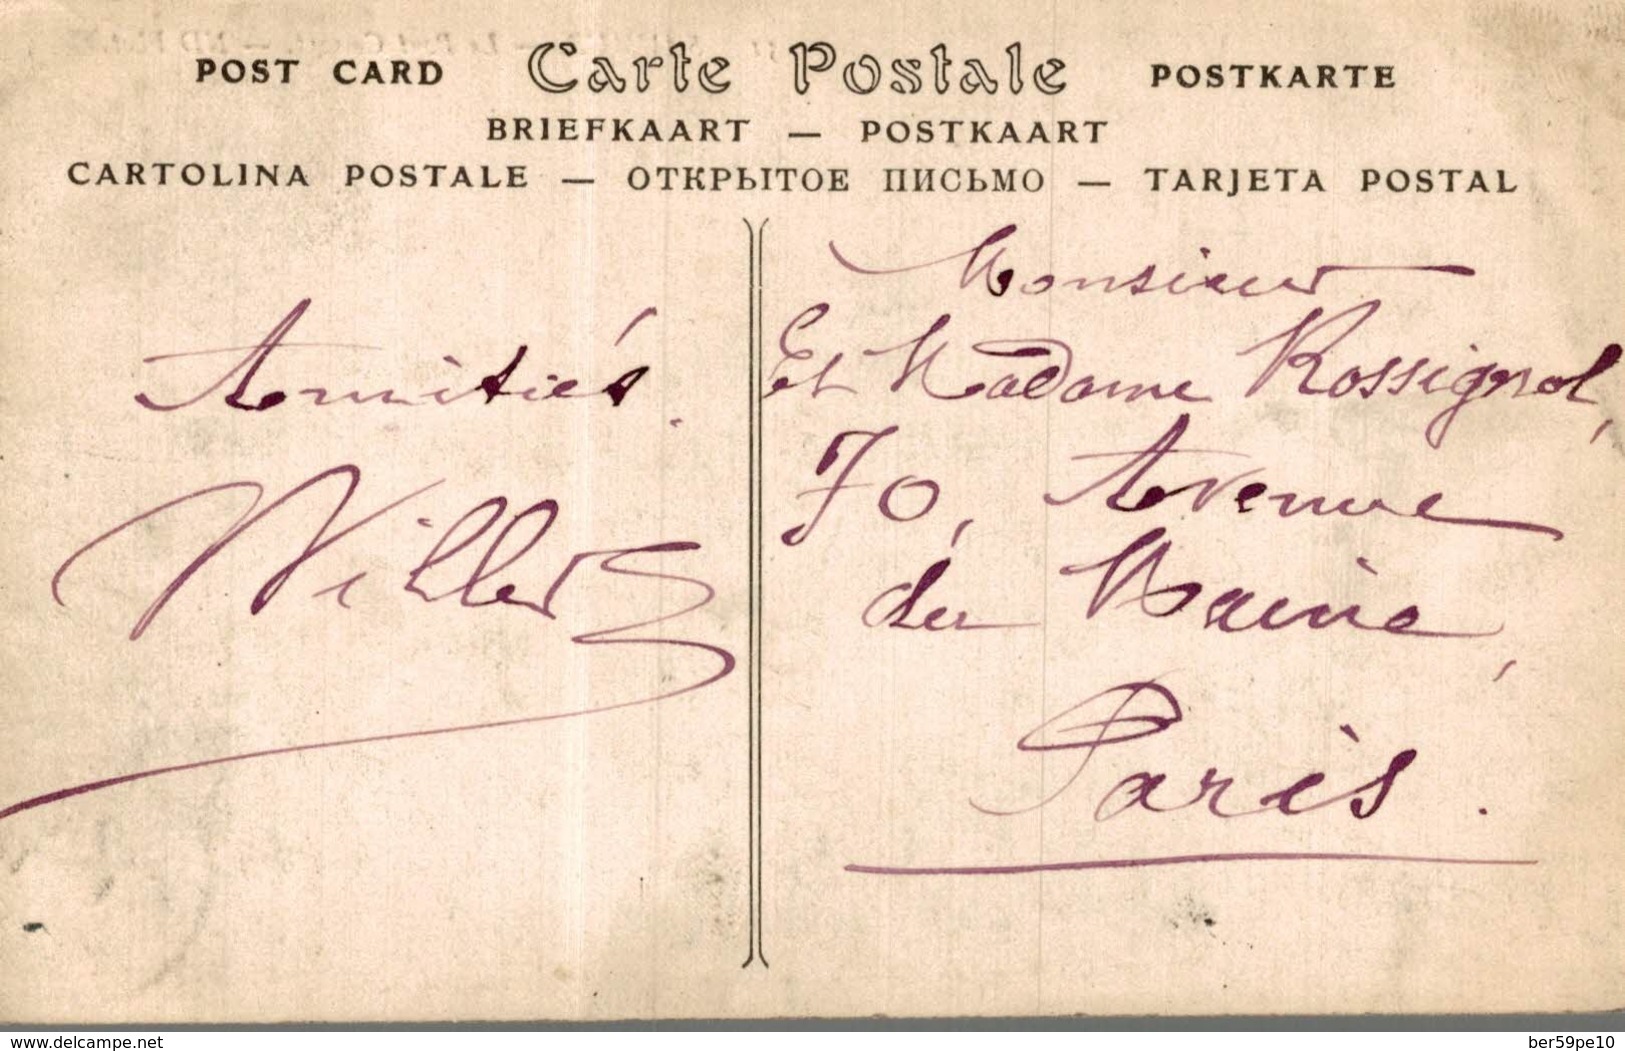 POST CARD Carte Postale POSTKARTE
BRIEFKAART — POSTKAART
CARTOLINA POSTALE — ОТКРЫТОЕ ПИСЬМО — TARJETA POSTAL
Amitiés.
Willer
Monsieur
Et Madame Rossignol,
70, Avenue
du Maine,
Paris.
www.delcampe.net
ber59pe10